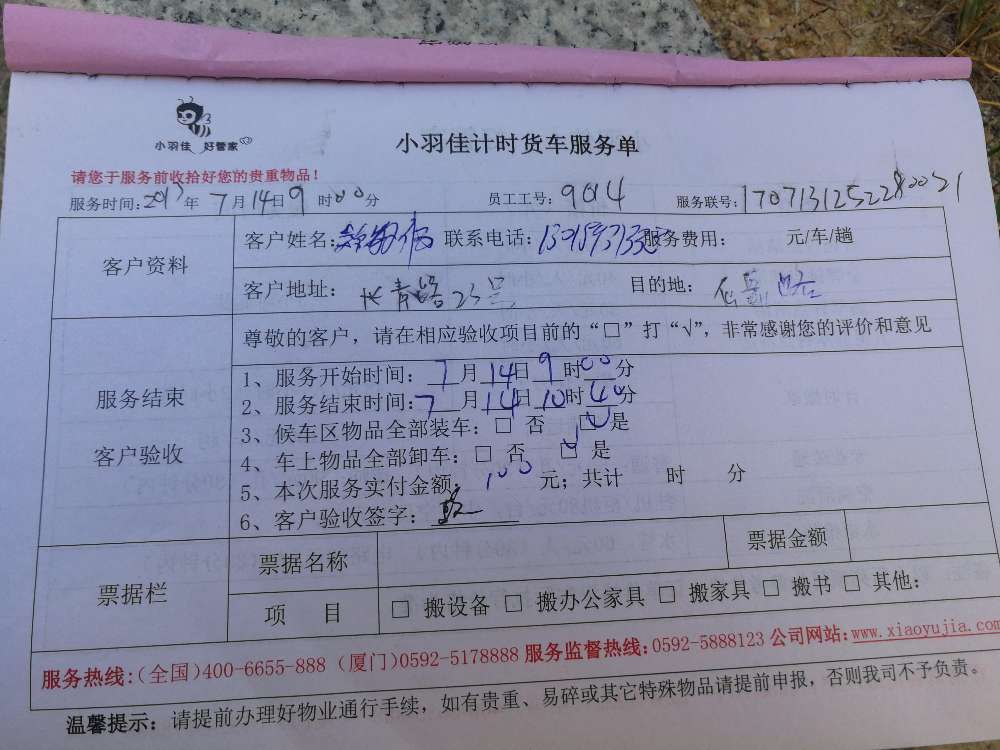 小羽佳 好管家
小羽佳计时货车服务单
请您于服务前收拾好您的贵重物品!
服务时间:2017年 7月14日9时00分 员工工号:9014 服务联号:
客户资料 客户姓名: 联系电话: 服务费用: 元/车/趟
客户地址: 长青路23号 目的地: 仙岳路
尊敬的客户,请在相应验收项目前的“□”打“√”,非常感谢您的评价和意见
服务结束
客户验收
1、服务开始时间:7月14日9时00分
2、服务结束时间:7月14日10时40分
3、候车区物品全部装车:□ 否 □√ 是
4、车上物品全部卸车:□ 否 □√ 是
5、本次服务实付金额:100元;共计 时 分
6、客户验收签字:
票据栏 票据名称 票据金额
项 目 □ 搬设备 □ 搬办公家具 □ 搬家具 □ 搬书 □ 其他:
服务热线:(全国)400-6655-888 (厦门)0592-5178888 服务监督热线:0592-5888123 公司网站:www.xiaoyujia.com
温馨提示:请提前办理好物业通行手续,如有贵重、易碎或其它特殊物品请提前申报,否则我司不予负责。